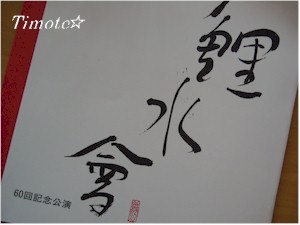 Timote☆
鯉水會
60回記念公演